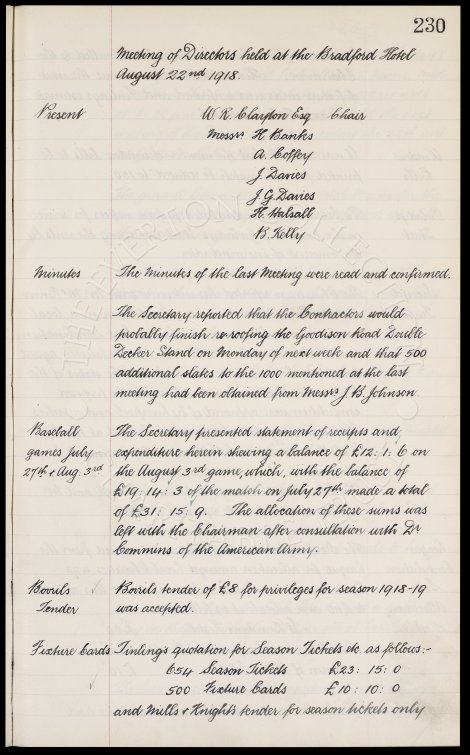 230
Meeting of Directors held at the Bradford Hotel
August 22nd 1918.
Present W. R. Clayton Esq Chair
Messrs H. Banks
A. Coffey
J. Davies
J. G. Davies
H. Halsall
B. Kelly
Minutes The Minutes of the last Meeting were read and confirmed.
The Secretary reported that the Contractors would
probably finish re-roofing the Goodison Road Double
Decker Stand on Monday of next week and that 500
additional slates to the 1000 mentioned at the last
meeting had been obtained from Messrs J. B. Johnson.
Baseball The Secretary presented statement of receipts and
games July expenditure herein shewing a balance of £12: 1: 6 on
27th & Aug. 3rd the August 3rd game, which, with the balance of
£19: 14: 3 of the match on July 27th made a total
of £31: 15: 9. The allocation of these sums was
left with the Chairman after consultation with Dr
Commins of the American Army.
Bovrils Bovrils tender of £8 for privileges for season 1918-19
Tender was accepted.
Fixture Cards Tinling's quotation for Season Tickets etc. as follows:-
654 Season Tickets £23: 15: 0
500 Fixture Cards £10: 10: 0
and Mills & Knight's tender for season tickets only
THE EVERTON COLLECTION